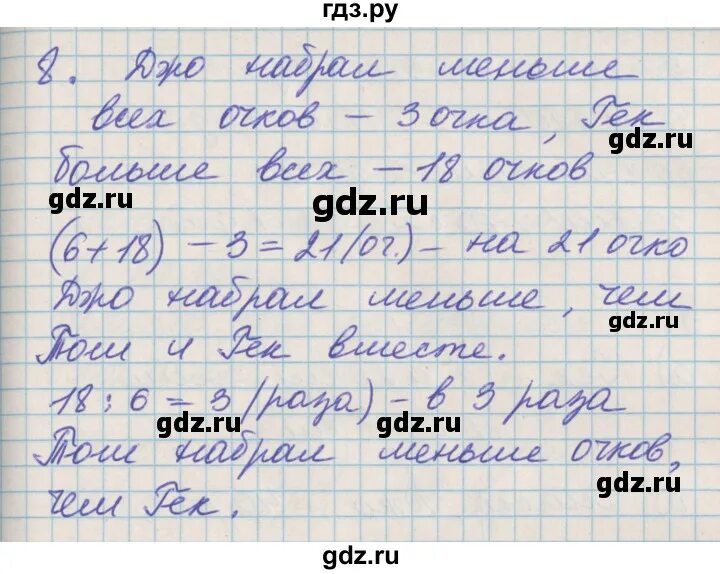 гдз.ру
8. Джо набрал меньше
всех очков – 3 очка, Гек
gdz.ru
больше всех – 18 очков
gdz.ru
gdz.ru
(6+18) – 3 = 21 (оч.) – на 21 очко
Джо набрал меньше, чем
gdz.ru
gdz.ru
Том и Гек вместе.
18 : 6 = 3 (раза) – в 3 раза
gdz.ru
gdz.ru
Том набрал меньше очков,
gdz.ru
чем Гек.
gdz.ru